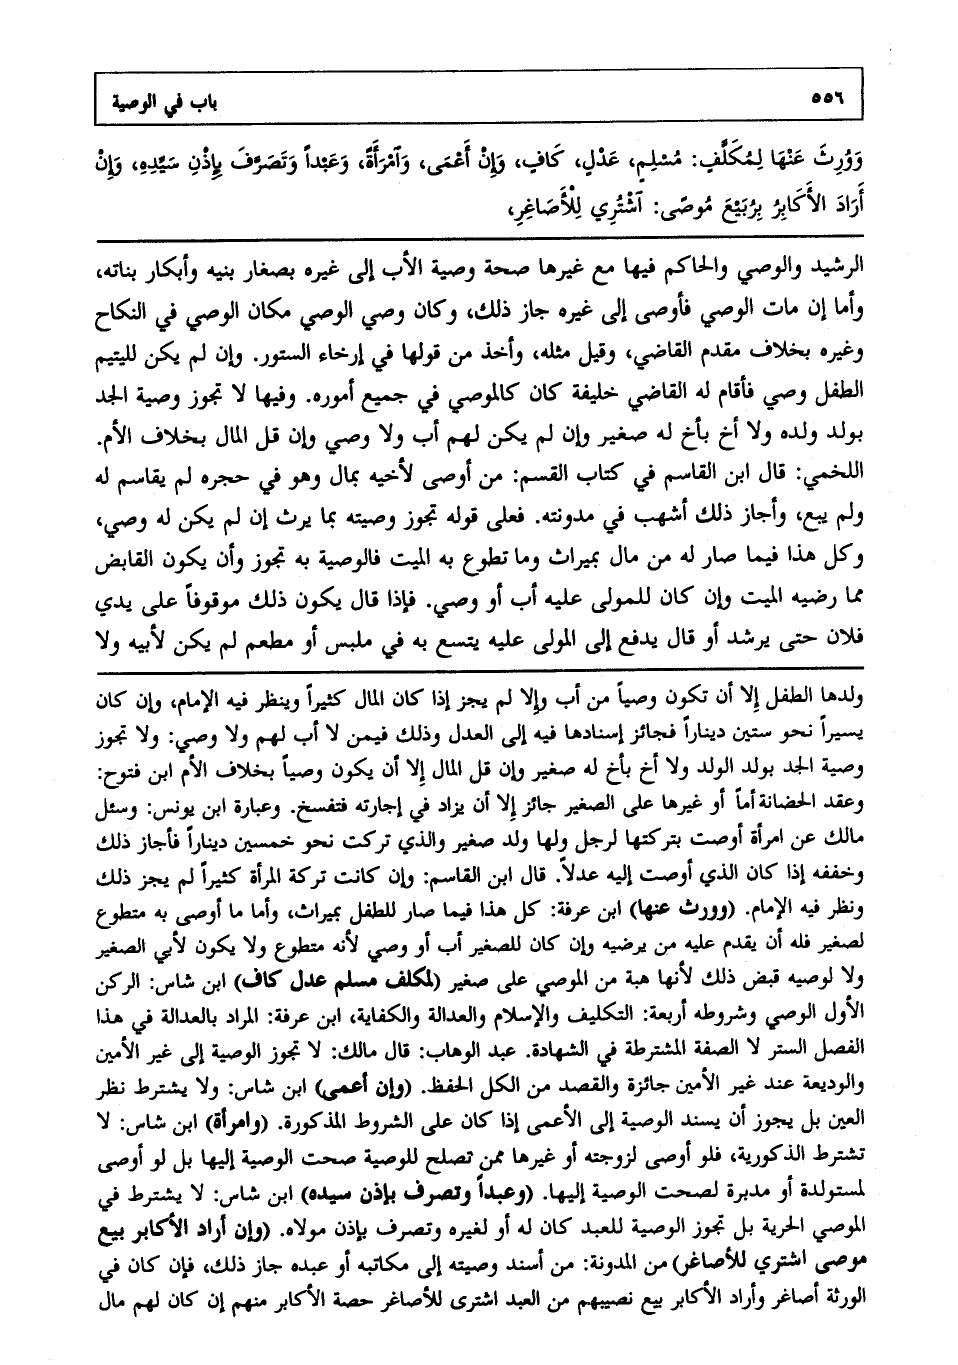 ٥٥٦
باب في الوصية
وَوُرِثَ عَنْهَا لِمُكَلَّفٍ: مُسْلِمٍ، عَدْلٍ، كَافٍ، وَإِنْ أَعْمَى، وَآمْرَأَةً، وَعَبْداً وَتَصَرَّفَ بِإِذْنِ سَيِّدِهِ، وَإِنْ
أَرَادَ الأَكَابِرُ بِرُبَيْعَ مُوصًى: آشْتُرِي لِلْأَصَاغِرِ،
الرشيد والوصي والحاكم فيها مع غيرها صحة وصية الأب إلى غيره بصغار بنيه وأبكار بناته،
وأما إن مات الوصي فأوصى إلى غيره جاز ذلك، وكان وصي الوصي مكان الوصي في النكاح
وغيره بخلاف مقدم القاضي، وقيل مثله، وأخذ من قولها في إرخاء الستور. وإن لم يكن لليتيم
الطفل وصي فأقام له القاضي خليفة كان كالموصي في جميع أموره. وفيها لا تجوز وصية الجد
بولد ولده ولا أخ بأخ له صغير وإن لم يكن لهم أب ولا وصي وإن قل المال بخلاف الأم.
اللخمي: قال ابن القاسم في كتاب القسم: من أوصى لأخيه بمال وهو في حجره لم يقاسم له
ولم يبع، وأجاز ذلك أشهب في مدونته. فعلى قوله تجوز وصيته بما يرث إن لم يكن له وصي،
وكل هذا فيما صار له من مال بميراث وما تطوع به الميت فالوصية به تجوز وأن يكون القابض
مما رضيه الميت وإن كان للمولى عليه أب أو وصي. فإذا قال يكون ذلك موقوفاً على يدي
فلان حتى يرشد أو قال يدفع إلى المولى عليه يتسع به في ملبس أو مطعم لم يكن لأبيه ولا
ولدها الطفل إلا أن تكون وصياً من أب وإلا لم يجز إذا كان المال كثيراً وينظر فيه الإمام، وإن كان
يسيراً نحو ستين ديناراً فجائز إسنادها فيه إلى العدل وذلك فيمن لا أب لهم ولا وصي: ولا تجوز
وصية الجد بولد الولد ولا أخ بأخ له صغير وإن قل المال إلا أن يكون وصياً بخلاف الأم ابن فتوح:
وعقد الحضانة أماً أو غيرها على الصغير جائز إلا أن يزاد في إجارته فتفسخ. وعبارة ابن يونس: وسئل
مالك عن امرأة أوصت بتركتها لرجل ولها ولد صغير والذي تركت نحو خمسين ديناراً فأجاز ذلك
وخففه إذا كان الذي أوصت إليه عدلاً. قال ابن القاسم: وإن كانت تركة المرأة كثيراً لم يجز ذلك
ونظر فيه الإمام. (وورث عنها) ابن عرفة: كل هذا فيما صار للطفل بميراث، وأما ما أوصى به متطوع
لصغير فله أن يقدم عليه من يرضيه وإن كان للصغير أب أو وصي لأنه متطوع ولا يكون لأبي الصغير
ولا لوصيه قبض ذلك لأنها هبة من الموصي على صغير (لمكلف مسلم عدل كاف) ابن شاس: الركن
الأول الوصي وشروطه أربعة: التكليف والإسلام والعدالة والكفاية، ابن عرفة: المراد بالعدالة في هذا
الفصل الستر لا الصفة المشترطة في الشهادة. عبد الوهاب: قال مالك: لا تجوز الوصية إلى غير الأمين
والوديعة عند غير الأمين جائزة والقصد من الكل الحفظ. (وإن أعمى) ابن شاس: ولا يشترط نظر
العين بل يجوز أن يسند الوصية إلى الأعمى إذا كان على الشروط المذكورة. (وامرأة) ابن شاس: لا
تشترط الذكورية، فلو أوصى لزوجته أو غيرها ممن تصلح للوصية صحت الوصية إليها بل لو أوصى
لمستولدة أو مدبرة لصحت الوصية إليها. (وعبداً وتصرف بإذن سيده) ابن شاس: لا يشترط في
الموصي الحرية بل تجوز الوصية للعبد كان له أو لغيره وتصرف بإذن مولاه. (وإن أراد الأكابر بيع
موصى اشتري للأصاغر) من المدونة: من أسند وصيته إلى مكاتبه أو عبده جاز ذلك، فإن كان في
الورثة أصاغر وأراد الأكابر بيع نصيبهم من العبد اشترى للأصاغر حصة الأكابر منهم إن كان لهم مال